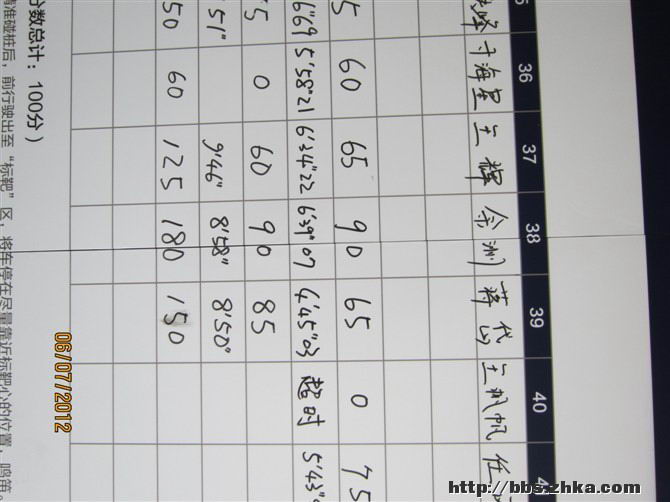 36 37 38 39 40
海星 王辉 余洲 蒋代山 王帆 任
5 60 65 90 65 0 75
6"69 5'58"21 6'34"22 6'29"07 4'45"03 超时 5'43"
5 0 60 90 85
51" 9'46" 8'58" 8'50"
50 60 125 180 150
分数总计：100分）
准碰桩后，前行驶出至“标靶”区，将车停在尽量靠近标靶心的位置，鸣笛。
06/07/2012
http://bbs.zhka.com